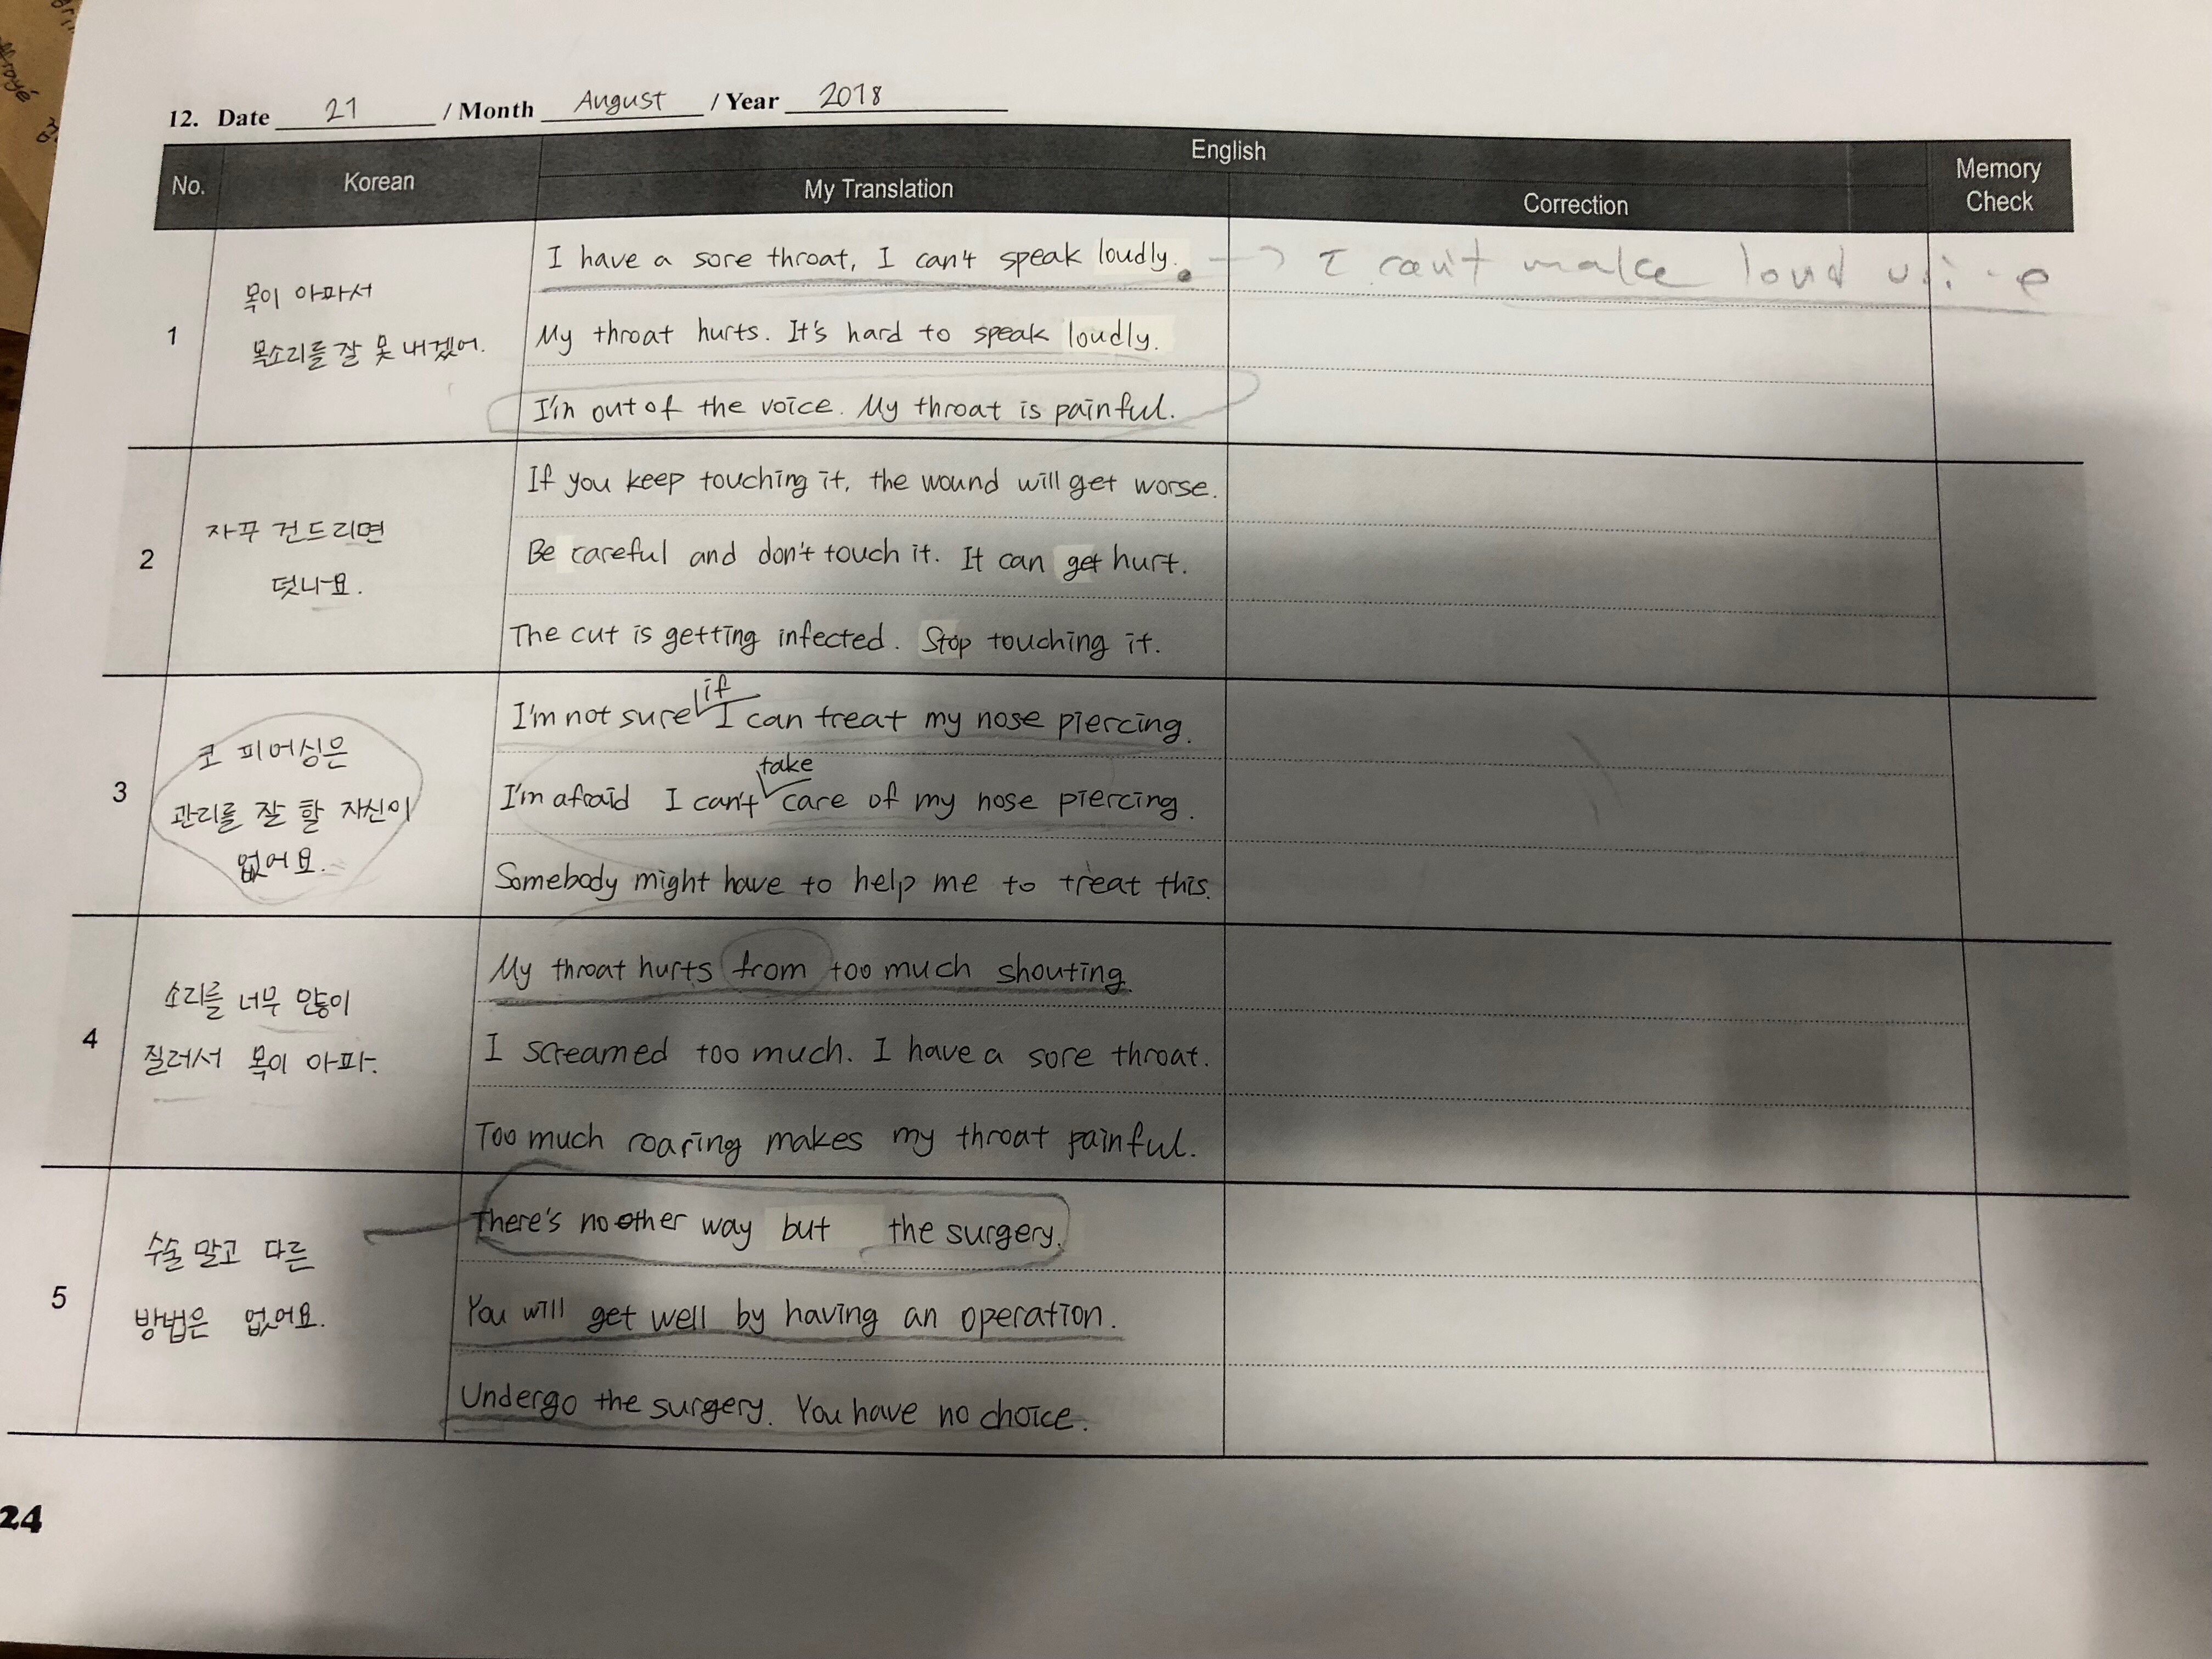 12. Date 21 / Month August / Year 2018
No.
Korean
English
My Translation
Correction
Memory Check
1
목이 아파서
목소리를 잘 못 내겠어.
I have a sore throat, I can't speak loudly. → I can't make loud
My throat hurts. It's hard to speak loudly.
I'm out of the voice. My throat is painful.
2
자꾸 건드리면
덧나요.
If you keep touching it, the wound will get worse.
Be careful and don't touch it. It can get hurt.
The cut is getting infected. Stop touching it.
3
코 피어싱은
관리를 잘 할 자신이
없어요.
if
I'm not sure I can treat my nose piercing.
take
I'm afraid I can't care of my nose piercing.
Somebody might have to help me to treat this.
4
소리를 너무 많이
질러서 목이 아파.
My throat hurts from too much shouting.
I screamed too much. I have a sore throat.
Too much roaring makes my throat painful.
5
수술 말고 다른
방법은 없어요.
There's no other way but the surgery.
You will get well by having an operation.
Undergo the surgery. You have no choice.
24